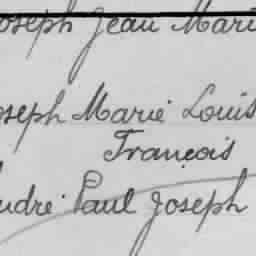 oseph Jean Mari
oseph Marie Louis
François
ndré Paul Joseph